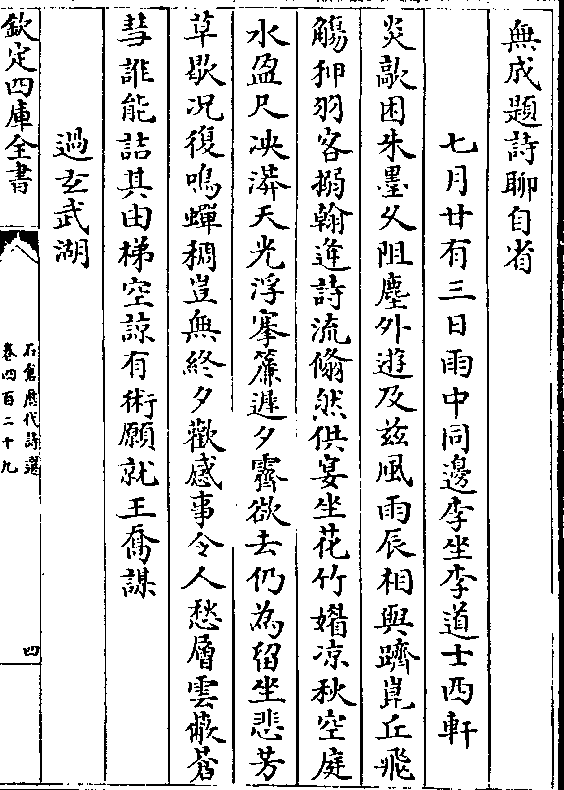 無成題詩聊自省
七月廿有三日雨中同邊李坐李道士西軒
炎歊困朱墨久阻塵外遊及兹風雨辰相與躋崑丘飛
觴狎羽客搦翰逢詩流翛然供宴坐花竹媚凉秋空庭
水盈尺泱漭天光浮搴簾遲夕霽欲去仍為留坐悲芳
草歇况復鳴蟬稠豈無終夕歡感事令人愁層雲蔽蒼
彗誰能詰其由梯空諒有術願就王喬謀
過玄武湖
欽定四庫全書
石倉歷代詩選
卷四百二十九
四